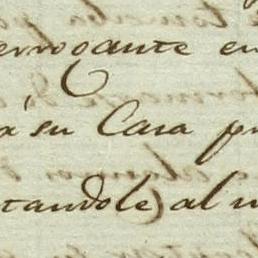 errogante en
a su Casa pr
tandole) al n